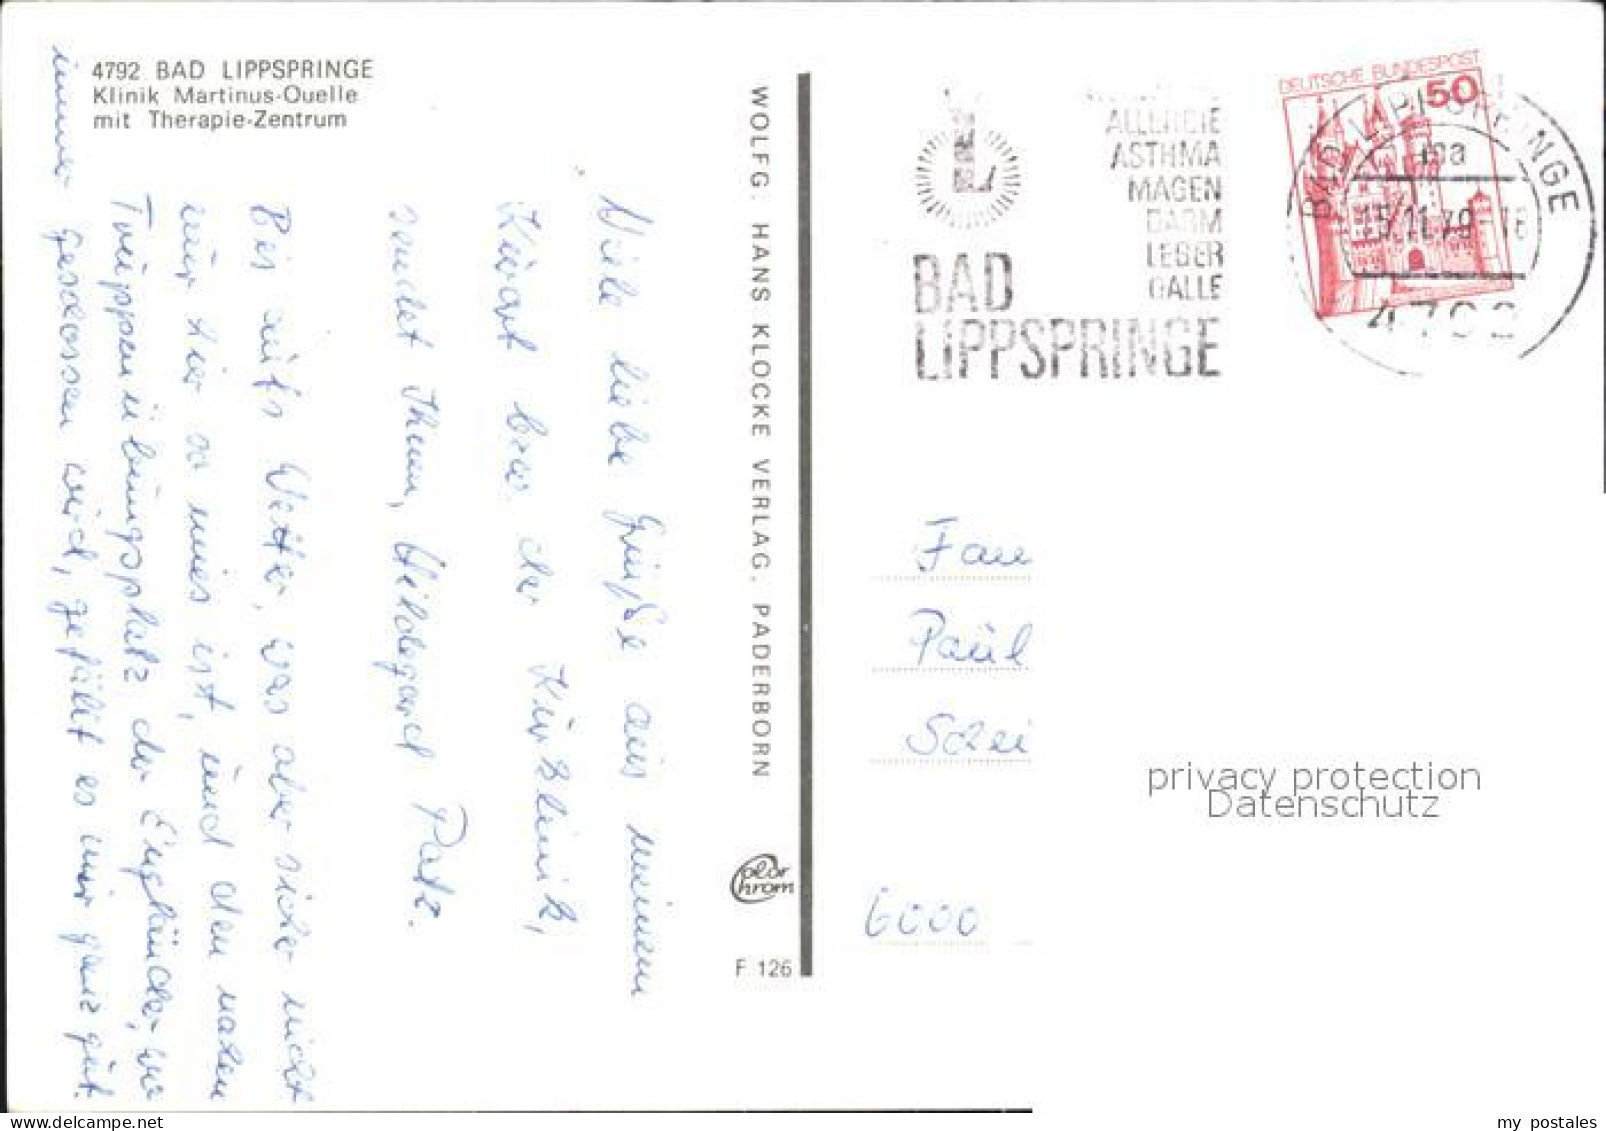 4792 BAD LIPPSPRINGE
Klinik Martinus-Quelle
mit Therapie-Zentrum
Viele liebe Grüße aus meinem
Kurort bzw. der Kurklinik,
sendet Ihnen, Hildegard Patz.
Bis aufs Wetter, was aber sicher nicht
nur hier so mies ist, und den nahen
Truppenübungsplatz der Engländer, wo
immer geschossen wird, gefällt es mir ganz gut.
WOLFG. HANS KLOCKE VERLAG, PADERBORN
Color
Chrom
F 126
L
BAD
LIPPSPRINGE
ALLERGIE
ASTHMA
MAGEN
DARM
LEBER
GALLE
DEUTSCHE BUNDESPOST
50
BAD LIPPSPRINGE
ma
15.11.79-18
4792
Frau
Paul
Schei
6000
privacy protection
Datenschutz
my postales